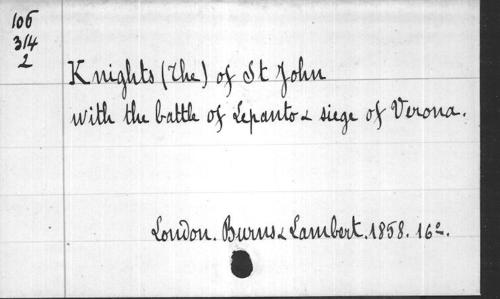 106
314
2
Knights (The) of St John
with the battle of Lepanto & siege of Verona.
London. Burns & Lambert. 1858. 16º.